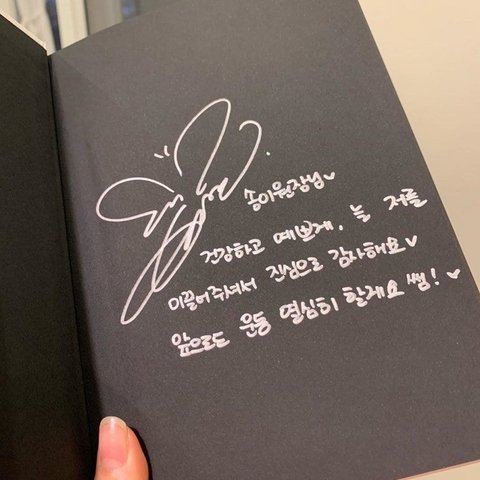 송이원장님♥
건강하고 예쁘게, 늘 저를
이끌어주셔서 진심으로 감사해요♥
앞으로도 운동 열심히 할게요 쌤! ♥